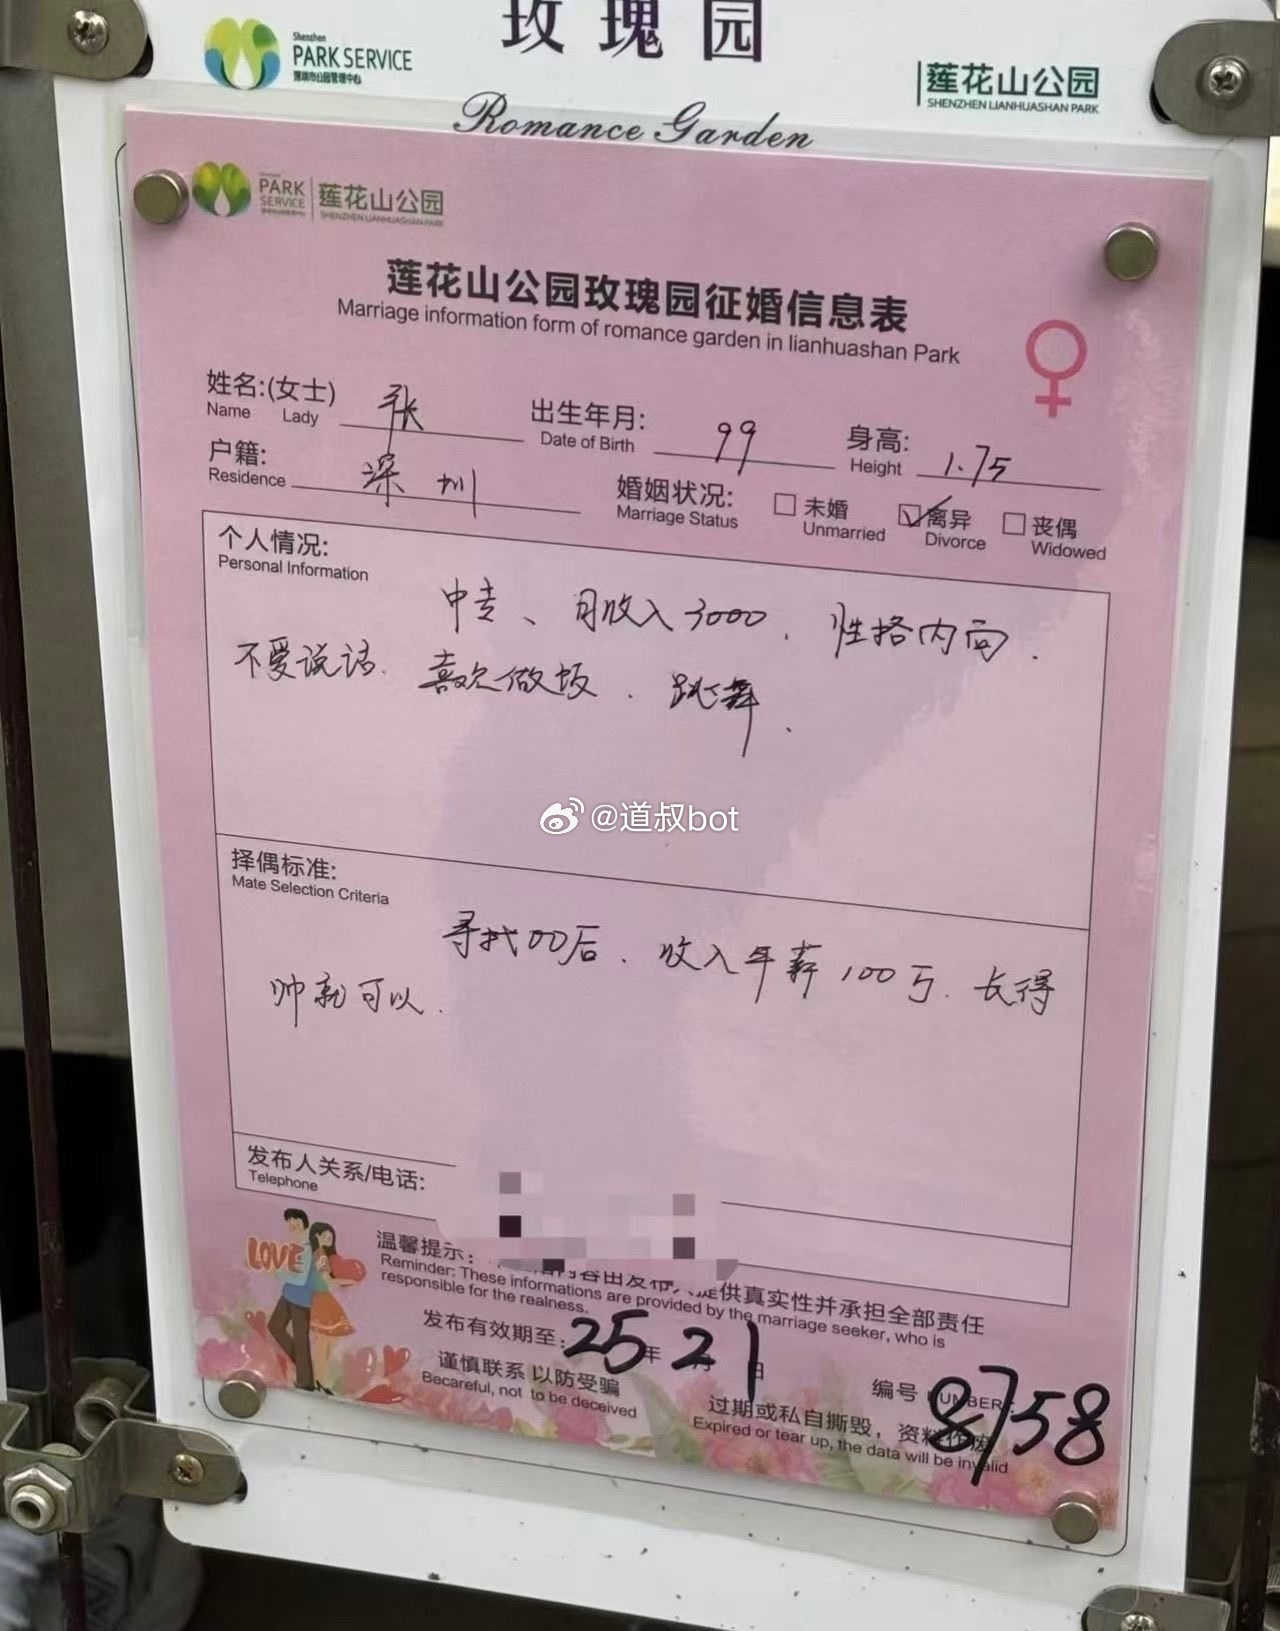 玫瑰园
Shenzhen
PARK SERVICE
深圳市公园管理中心
莲花山公园
SHENZHEN LIANHUASHAN PARK
Romance Garden
PARK SERVICE
莲花山公园
SHENZHEN LIANHUASHAN PARK
莲花山公园玫瑰园征婚信息表
Marriage information form of romance garden in lianhuashan Park
姓名:(女士) 张 出生年月: 99 身高: 1.75
Name Lady Date of Birth Height
户籍: 深圳 婚姻状况: 未婚 离异 丧偶
Residence Marriage Status Unmarried Divorce Widowed
个人情况:
Personal Information
中专、月收入3000.性格内向.
不爱说话.喜欢做饭.跳舞.
@道叔bot
择偶标准:
Mate Selection Criteria
寻找00后.收入年薪100万.长得
帅就可以.
发布人关系/电话:
Telephone
LOVE
温馨提示:
内容由发布人提供真实性并承担全部责任
Reminder: These informations are provided by the marriage seeker, who is
responsible for the realness.
发布有效期至: 25年2月1日
谨慎联系 以防受骗
Becareful, not to be deceived
编号 NUMBER: 8758
过期或私自撕毁，资料作废
Expired or tear up, the data will be invalid